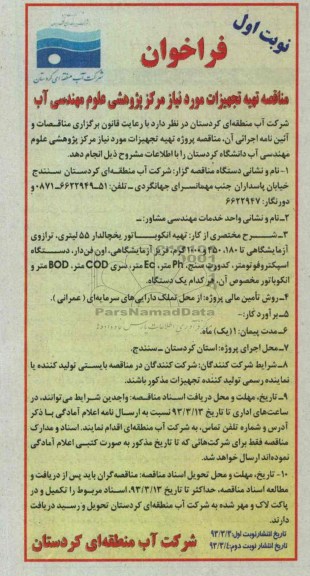 نوبت اول
شرکت آب منطقه‌ای کردستان
فراخوان
مناقصه تهیه تجهیزات مورد نیاز مرکز پژوهشی علوم مهندسی آب
شرکت آب منطقه‌ای کردستان در نظر دارد با رعایت قانون برگزاری مناقصات و
آئین نامه اجرائی آن، مناقصه پروژه تهیه تجهیزات مورد نیاز مرکز پژوهشی علوم
مهندسی آب دانشگاه کردستان را با اطلاعات مشروح ذیل انجام دهد.
۱- نام و نشانی دستگاه مناقصه گزار: شرکت آب منطقه‌ای کردستان سنندج
خیابان پاسداران جنب مهمانسرای جهانگردی ـ تلفن: ۵۱ـ۶۶۲۲۹۴۹-۰۸۷۱ و
دورنگار: ۶۶۲۲۹۴۷
۲- نام و نشانی واحد خدمات مهندسی مشاور: ــ
۳- شرح مختصری از کار: تهیه انکوباتور یخچالدار ۵۵ لیتری، ترازوی
آزمایشگاهی تا ۱۸۰، ۴۵۰، گرم، فریزر آزمایشگاهی، اون فن‌دار، دستگاه
اسپکتروفوتومتر، کدورت سنج، Ph متر، Ec متر، سری COD متر، BOD متر و
انکوباتور مخصوص آن، هر کدام یک دستگاه.
۴- روش تأمین مالی پروژه: از محل تملک دارایی‌های سرمایه‌ای (عمرانی).
ParsNamadData
۵- برآورد کار: -
۶- مدت پیمان: ۱ (یک) ماه.
۷- محل اجرای پروژه: استان کردستان ـ سنندج.
۸- شرایط شرکت کنندگان: شرکت کنندگان در مناقصه بایستی تولید کننده یا
نماینده رسمی تولید کننده تجهیزات مذکور باشند.
۹- تاریخ، مهلت و محل دریافت اسناد مناقصه: واجدین شرایط می‌توانند، در
ساعت‌های اداری تا تاریخ ۹۳/۳/۱۳ نسبت به ارسال نامه اعلام آمادگی با ذکر
آدرس و شماره تلفن تماس، به شرکت آب منطقه‌ای اقدام نمایند. اسناد و مدارک
مناقصه فقط برای شرکت‌هائی که تا تاریخ مذکور به صورت کتبی اعلام آمادگی
نموده‌اند ارسال خواهد شد.
۱۰- تاریخ، مهلت و محل تحویل اسناد مناقصه: مناقصه‌گران باید پس از دریافت و
مطالعه اسناد مناقصه، حداکثر تا تاریخ ۹۳/۳/۱۳، اسناد مربوط را تکمیل و در
پاکت لاک و مهر شده به شرکت آب منطقه‌ای کردستان تحویل و رسید دریافت
دارند.
تاریخ انتشار نوبت اول: ۹۳/۳/۳
تاریخ انتشار نوبت دوم: ۹۳/۳/۴
شرکت آب منطقه‌ای کردستان